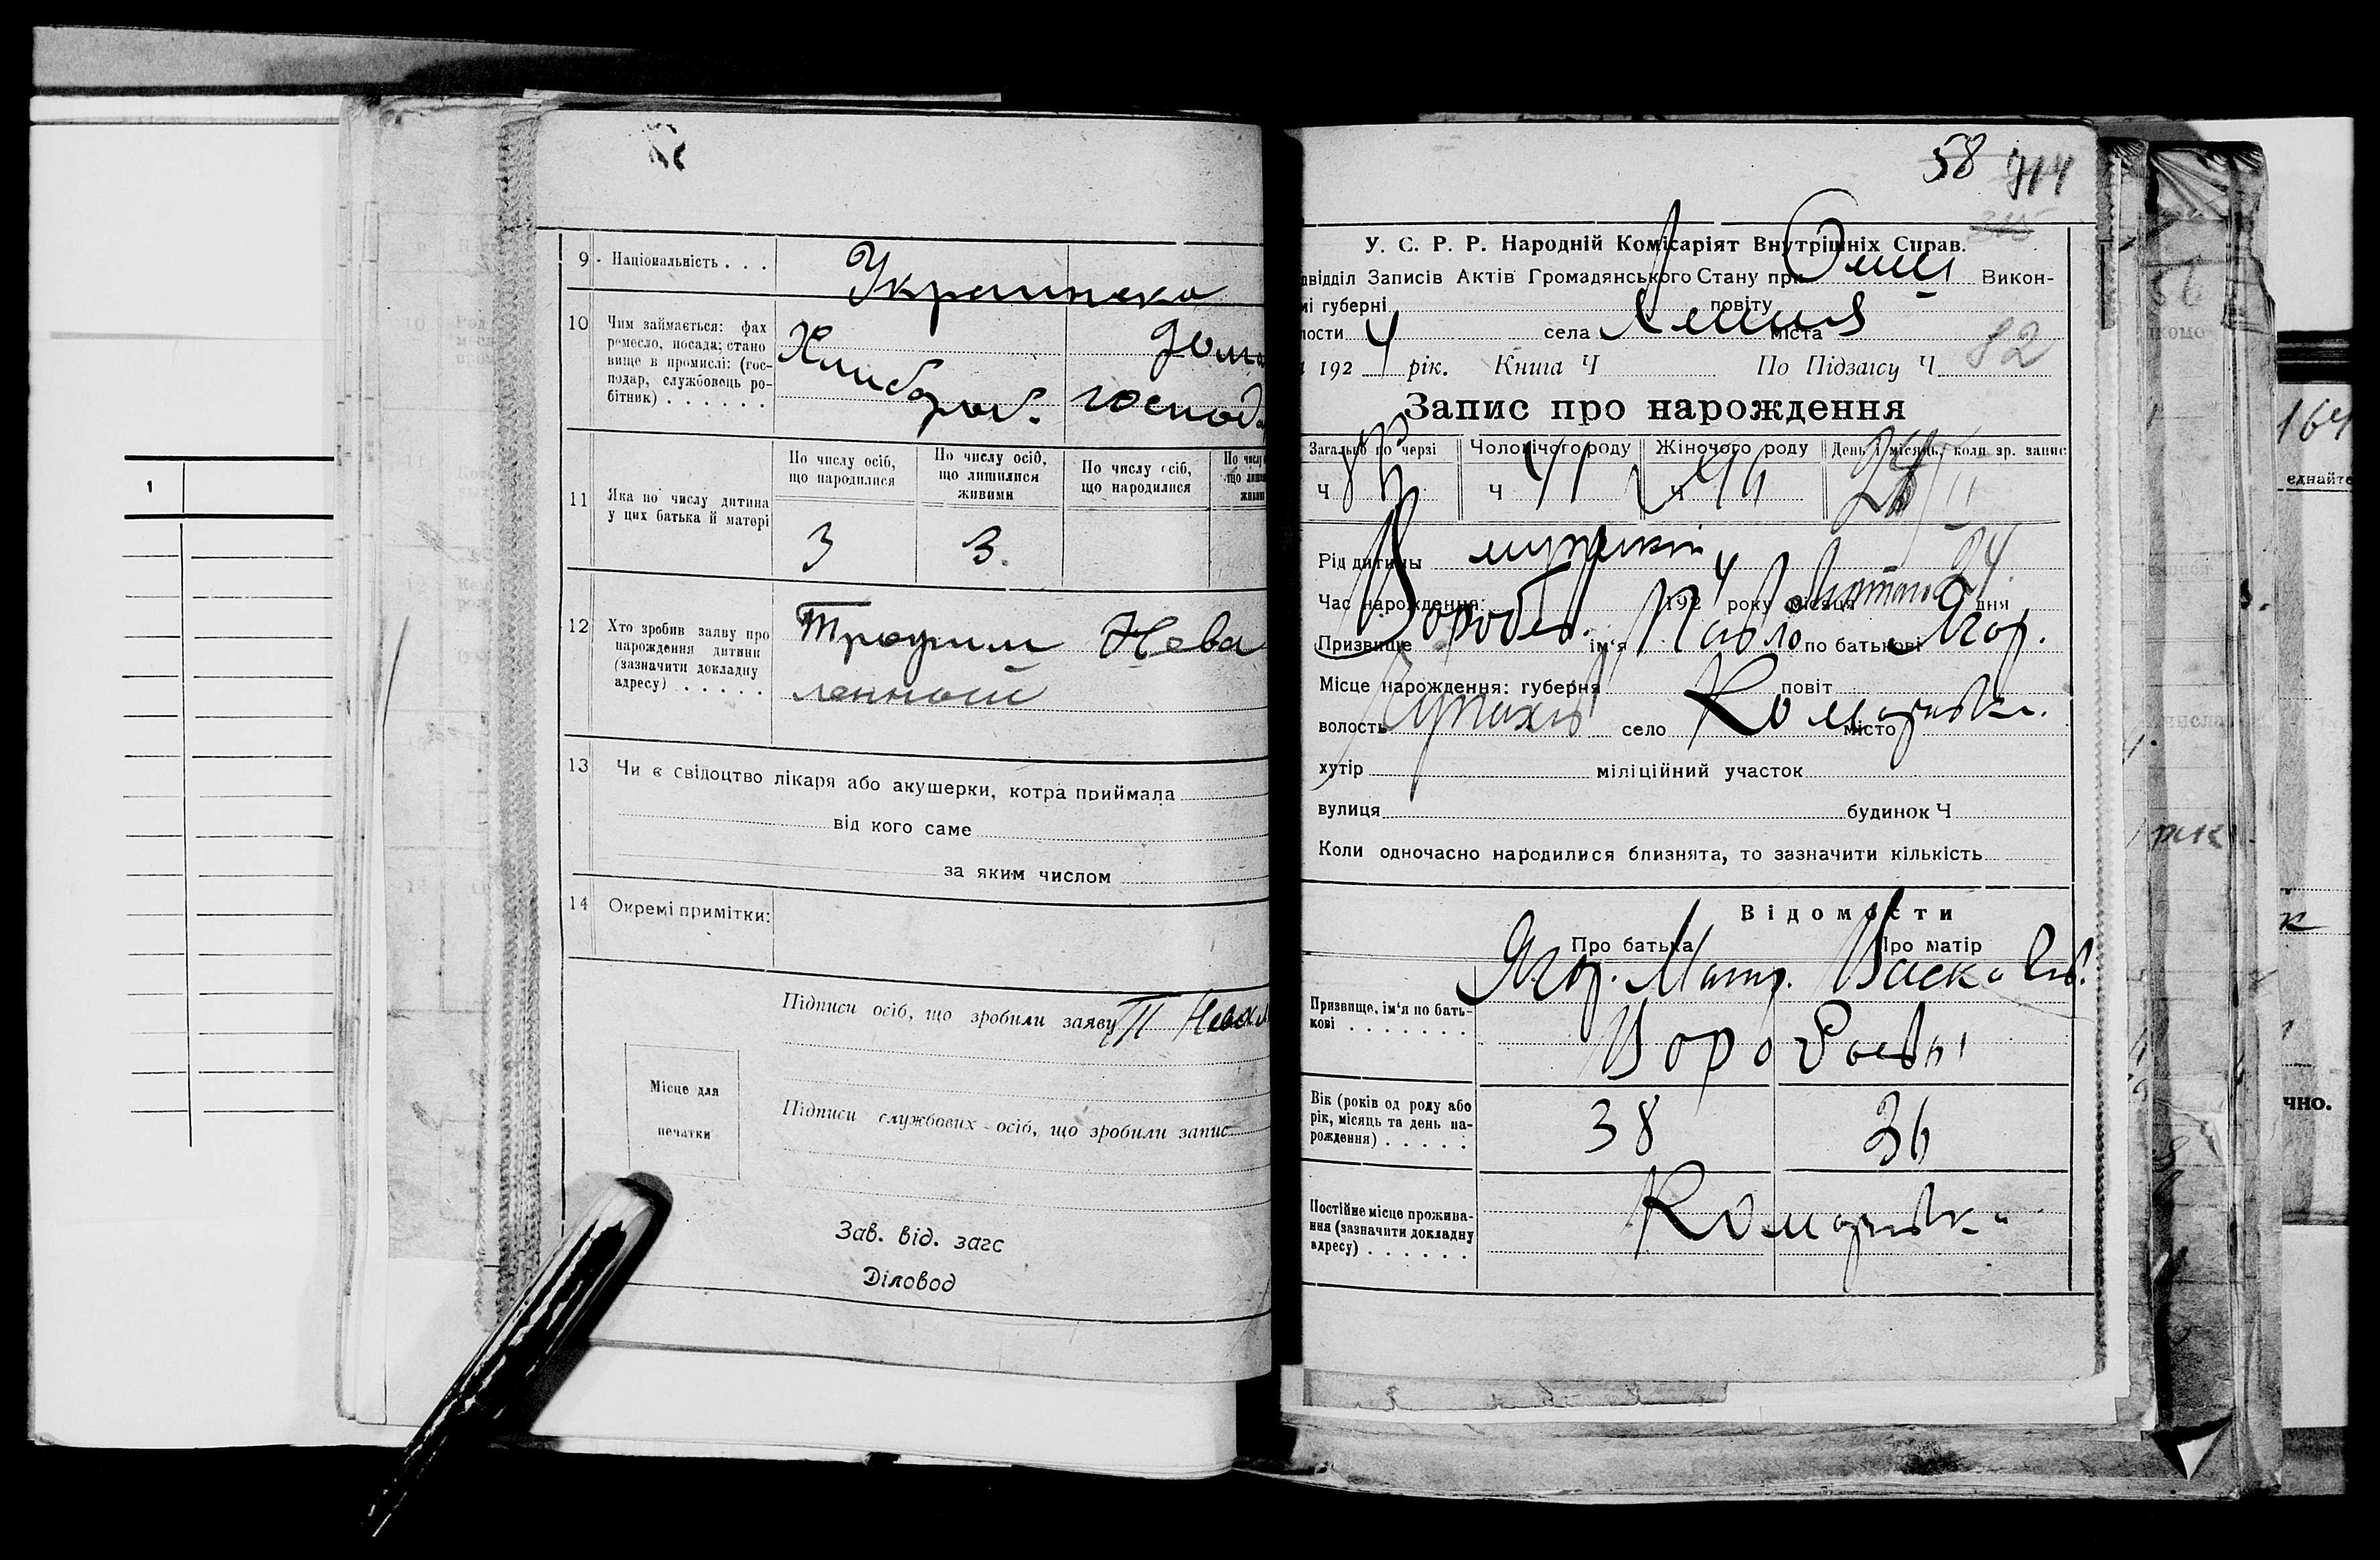 1
9
Національність . . .
Украинска
10
Чим займається: фах
ремесло, посада; стано
вище в промислі: (гос-
подар, службовець ро-
бітник) . . . . . .
Хлибороб.
дома
господа
11
Яка по числу дитина
у цих батька й матері
По числу осіб,
що народилися
По числу осіб,
що лишилися
живими
По числу осіб,
що народилися
3
3.
12
Хто зробив заяву про
нарождення дитини
(зазначити докладну
адресу) . . . . .
Трофим Нева
ленной
13
Чи є свідоцтво лікаря або акушерки, котра приймала
від кого саме
за яким числом
14
Окремі примітки:
Підписи осіб, що зробили заяву
Місце для
печатки
Підписи службових осіб, що зробили запис
Зав. від. загс
Діловод
58 714
У. С. Р. Р. Народній Комісаріят Внутрішніх Справ.
двідділ Записів Актів Громадянського Стану при Викон-
мі губерні повіту
лости села міста
192 4 рік. Книга Ч По Підзагсу Ч 82
Запис про нарождення
Загально по черзі Чоловічого роду Жіночого роду День і місяць, коли зр. запис
Ч Ч 41 Ч
Рід дитини
Час нарождення: 1924 року місяця Лютого 24 дня
Призвище Воробьв. ім'я Павло по батькові Ягор.
Місце нарождення: губерня повіт
волость село Комарівка. місто
хутір міліційний участок
вулиця будинок Ч
Коли одночасно народилися близнята, то зазначити кількість
Відомости
Про батька Про матір
Призвище, ім'я по бать-
кові . . . . . . .
Ягор. Митр. Васка
Воробьевы
Вік (років од роду або
рік, місяць та день на-
рождення) . . . . .
38 36
Постійне місце прожива-
ння (зазначити докладну
адресу) . . . . . .
Комарівка
164
еднайте
к
чно.